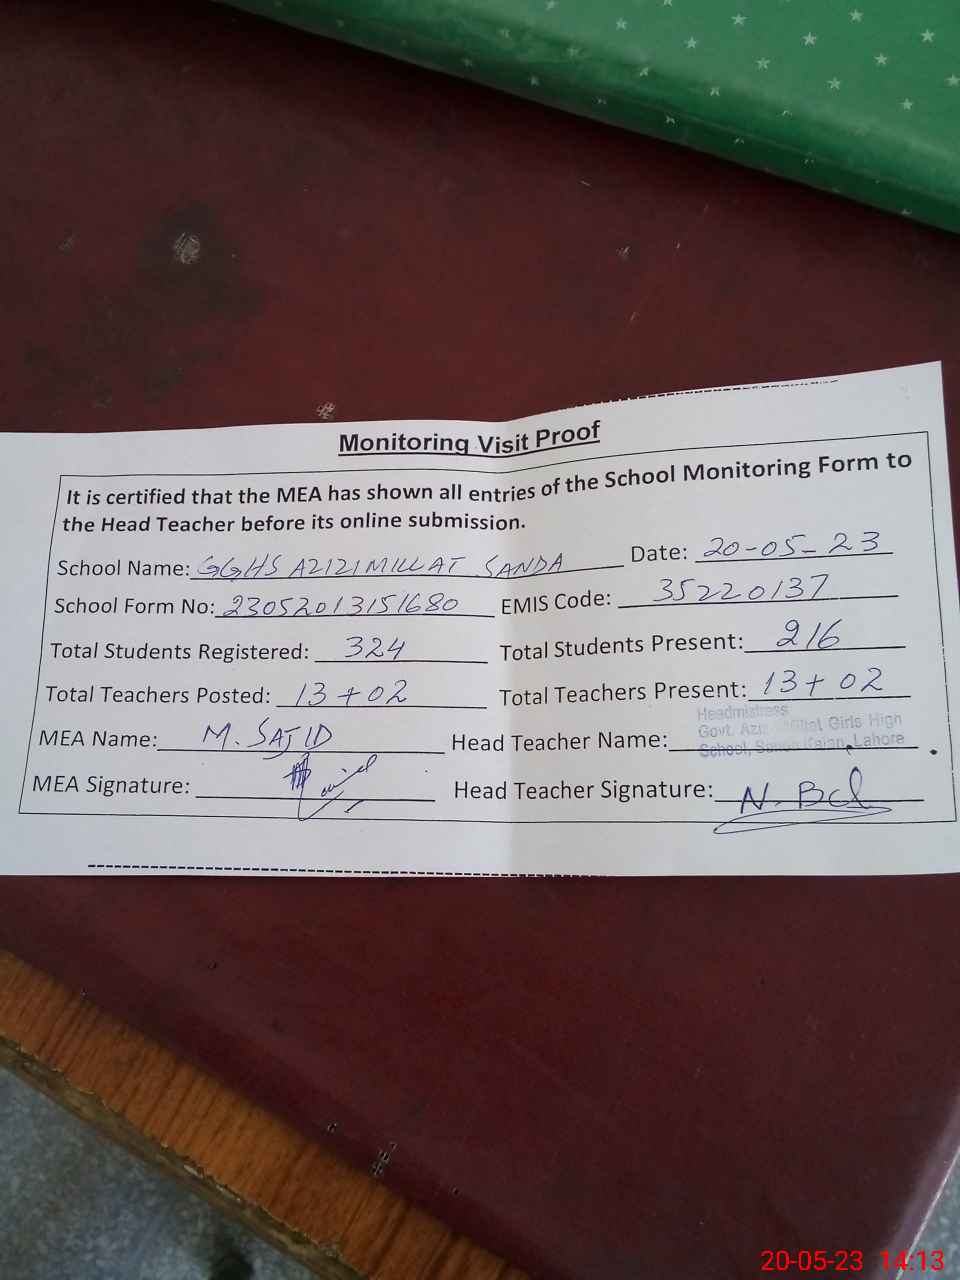 Monitoring Visit Proof
It is certified that the MEA has shown all entries of the School Monitoring Form to
the Head Teacher before its online submission.
School Name: GGHS AZIZI MILLAT SANDA Date: 20-05-23
School Form No: 23052013151680 EMIS Code: 35220137
Total Students Registered: 324 Total Students Present: 216
Total Teachers Posted: 13+02 Total Teachers Present: 13+02
Headmistress
Govt. Girls High
MEA Name: M. SAJID Head Teacher Name: School, Lahore
MEA Signature: Head Teacher Signature: N.
20-05-23 14:13